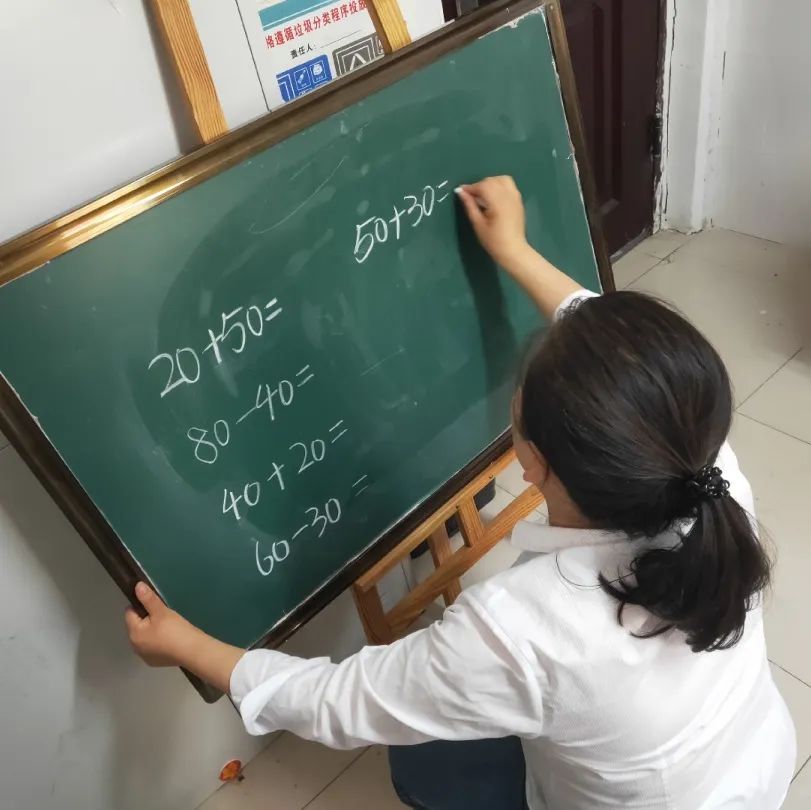 恪遵循垃圾分类程序投放
责任人:
50+30=
20+50=
80-40=
40+20=
60-30=